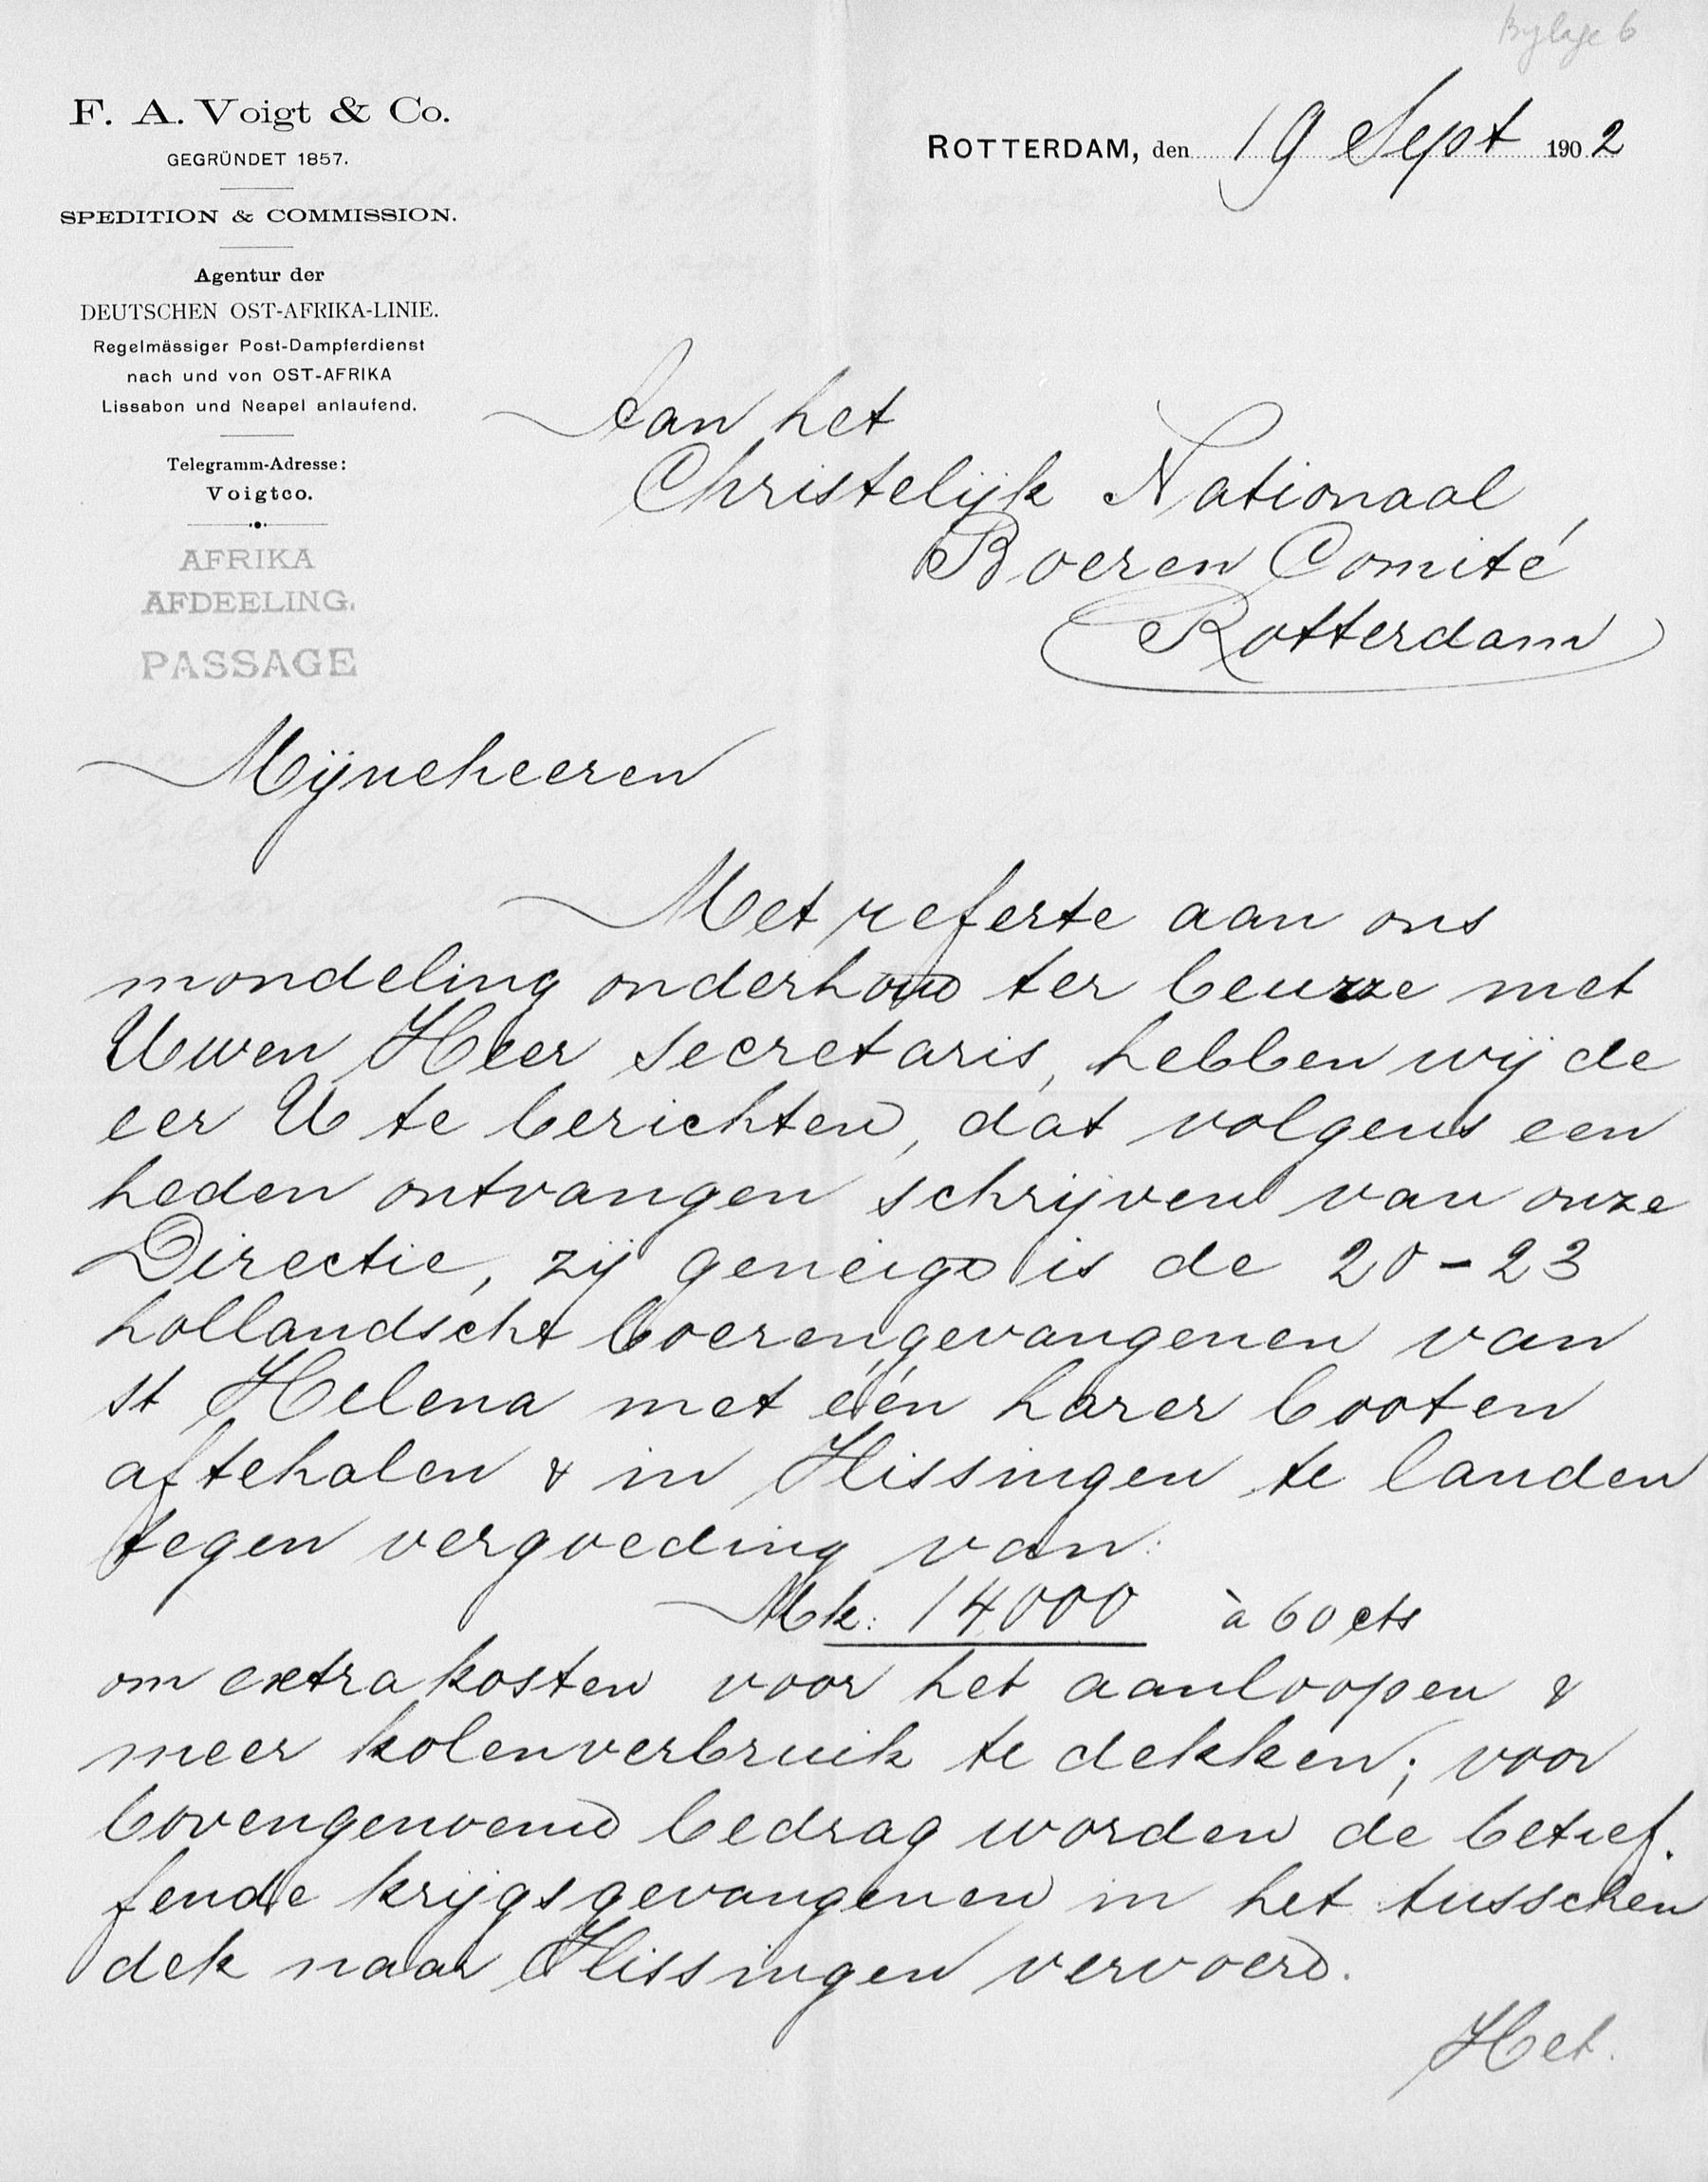 Bylage 6
F. A. Voigt & Co.
GEGRÜNDET 1857.
SPEDITION & COMMISSION.
Agentur der
DEUTSCHEN OST-AFRIKA-LINIE.
Regelmässiger Post-Dampferdienst
nach und von OST-AFRIKA
Lissabon und Neapel anlaufend.
Telegramm-Adresse:
Voigtco.
AFRIKA
AFDEELING.
PASSAGE
ROTTERDAM, den 19 Sept 1902
Aan het
Christelijk Nationaal
Boeren Comité
Rotterdam
Mijneheeren
Met referte aan ons
mondeling onderhoud ter beurze met
Uwen Heer Secretaris, hebben wij de
eer U te berichten, dat volgens een
heden ontvangen schrijven van onze
Directie, zij geneigd is de 20-23
hollandsche boerengevangenen van
st Helena met één harer booten
aftehalen & in Vlissingen te landen
tegen vergoeding van:
Mk: 14000 à 60 cts
om extra kosten voor het aanloopen &
meer kolenverbruik te dekken; voor
bovengenoemd bedrag worden de betref.
fende krijgsgevangenen in het tusschen
dek naar Vlissingen vervoerd.
Het.